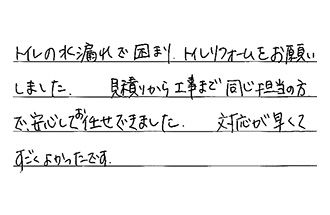 トイレの水漏れで困まり、トイレリフォームをお願い
しました。 見積りから工事まで同じ担当の方
で、安心してお任せできました。 対応が早くて
すごくよかったです。